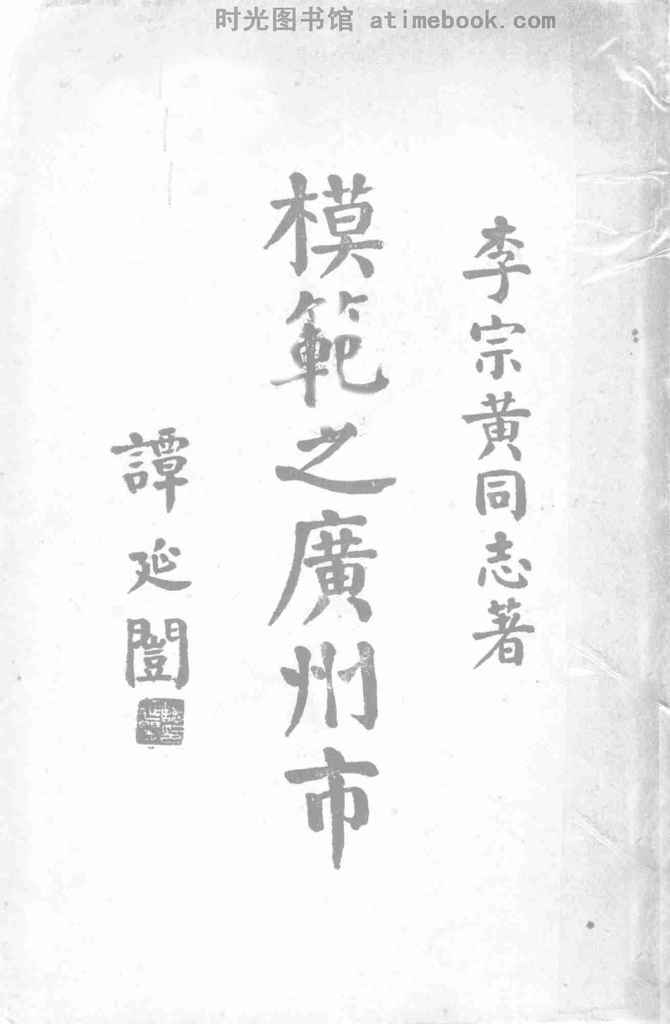 时光图书馆 atimebook.com
李宗黄同志著
模範之廣州市
譚延闓